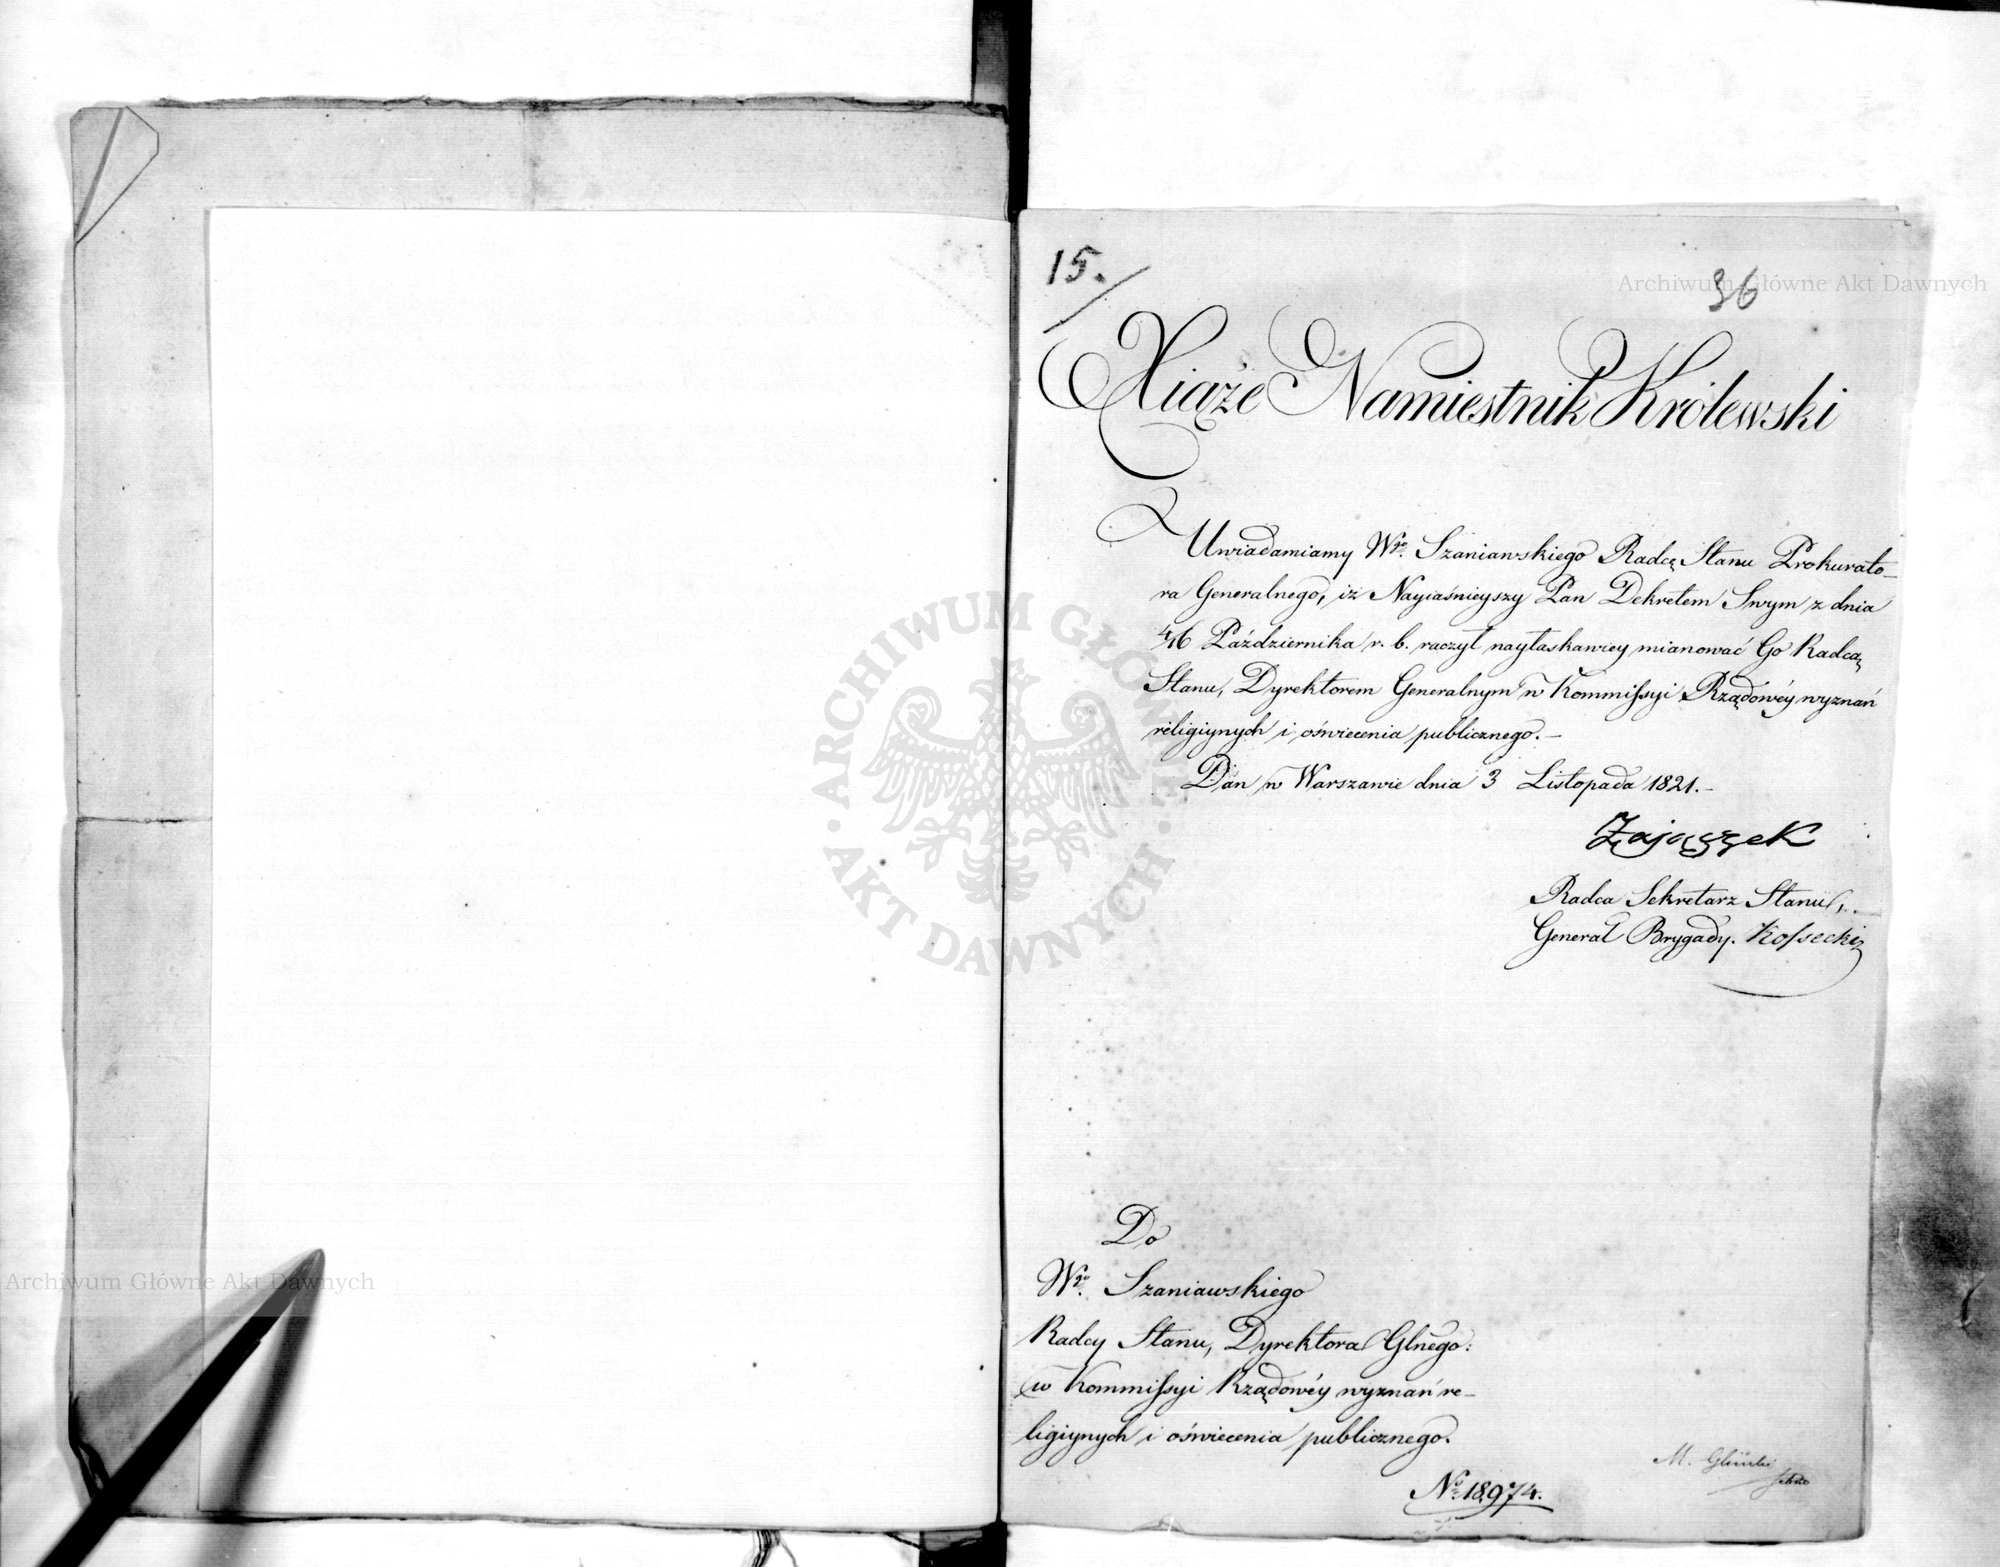 15.
36
Xiąże Namiestnik Królewski
Uwiadamiamy Wgo. Szaniawskiego Radcę Stanu Prokurato-
ra Generalnego, iż Nayiaśnieyszy Pan Dekretem Swym z dnia
4/16 Października r. b. raczył nayłaskawiey mianować Go Radcą
Stanu, Dyrektorem Generalnym w Kommissyi Rządowéy wyznań
religiynych i oświecenia publicznego.-
Dan w Warszawie dnia 3 Listopada 1821.-
Zajączek
Radca Sekretarz Stanu,
Generał Brygady. Kossecki
Do
Wgo. Szaniawskiego
Radcy Stanu, Dyrektora Glnego:
w Kommissyi Rządowéy wyznań re-
ligiynych i oświecenia publicznego.
No. 18,974.
M.
Archiwum Główne Akt Dawnych
Archiwum Główne Akt Dawnych
ARCHIWUM GŁÓWNE AKT DAWNYCH